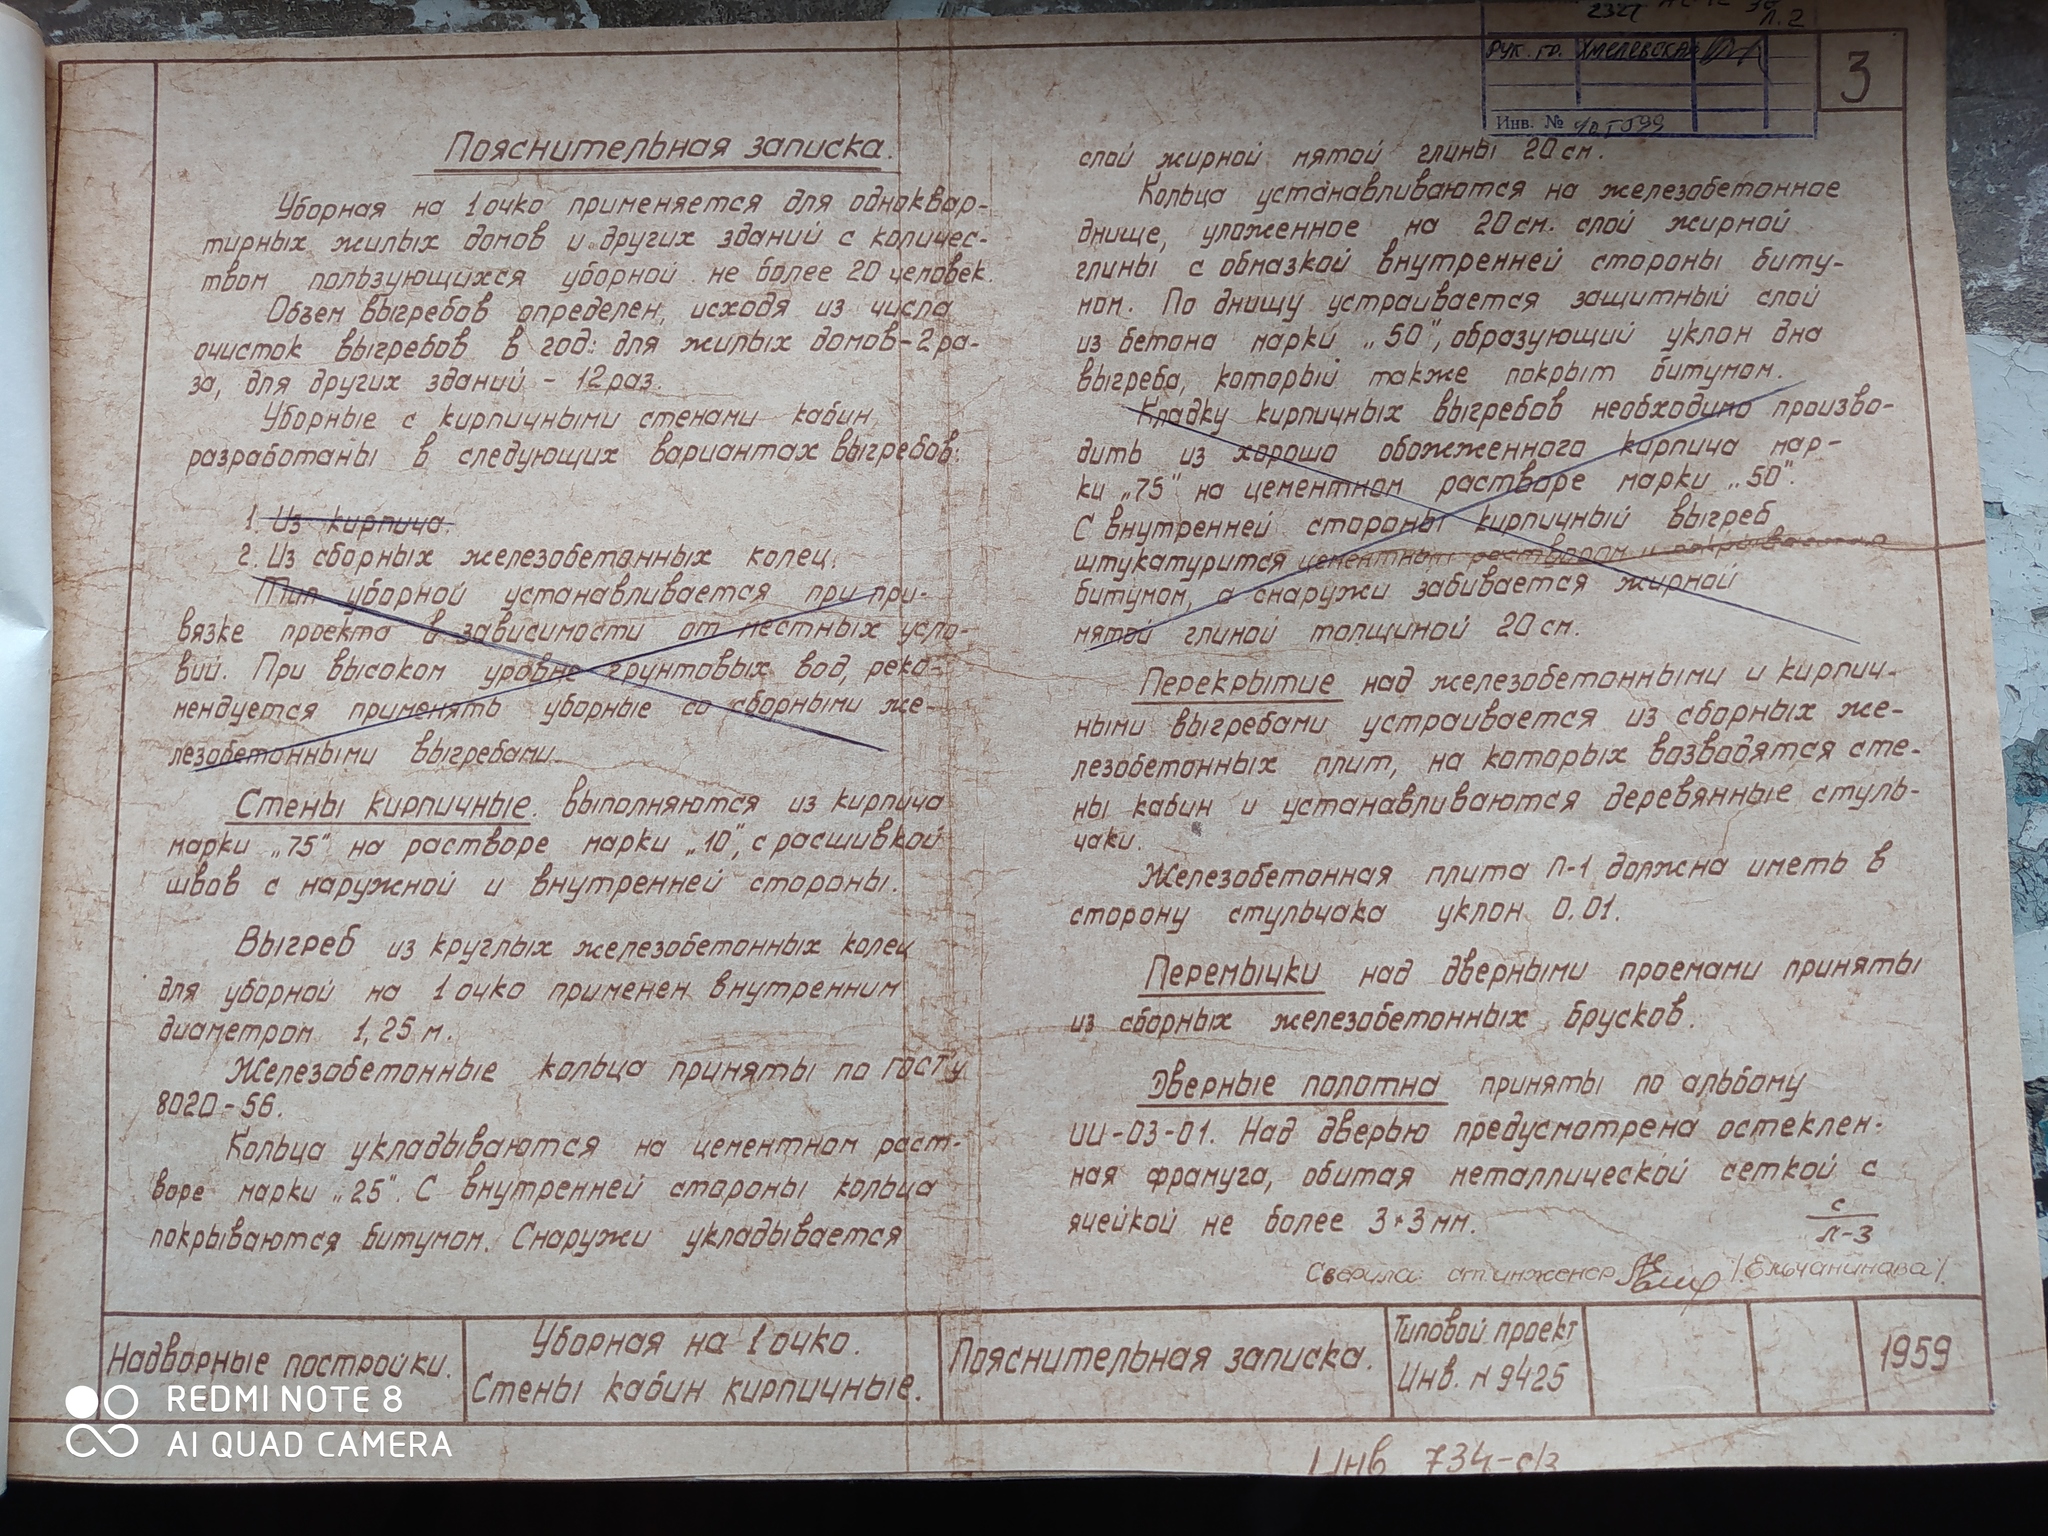 Л.2
Рук. гр. Хмелевская
Инв. №
3
Пояснительная записка.
Уборная на 1 очко применяется для одноквар-
тирных жилых домов и других зданий с количес-
твом пользующихся уборной не более 20 человек.
Объем выгребов определен, исходя из числа
очисток выгребов в год: для жилых домов - 2 ра-
за, для других зданий - 12 раз.
Уборные с кирпичными стенами кабин,
разработаны в следующих вариантах выгребов:
1. Из кирпича.
2. Из сборных железобетонных колец.
Тип уборной устанавливается при при-
вязке проекта в зависимости от местных усло-
вий. При высоком уровне грунтовых вод, реко-
мендуется применять уборные со сборными же-
лезобетонными выгребами.
Стены кирпичные. выполняются из кирпича
марки „75" на растворе марки „10", с расшивкой
швов с наружной и внутренней стороны.
Выгреб из круглых железобетонных колец
для уборной на 1 очко применен внутренним
диаметром 1,25 м.
Железобетонные кольца приняты по ГОСТу
8020-56.
Кольца укладываются на цементном раст-
воре марки „25". С внутренней стороны кольца
покрываются битумом. Снаружи укладывается
слой жирной мятой глины 20 см.
Кольца устанавливаются на железобетонное
днище, уложенное на 20 см. слой жирной
глины с обмазкой внутренней стороны биту-
мом. По днищу устраивается защитный слой
из бетона марки „50", образующий уклон дна
выгреба, который также покрыт битумом.
Кладку кирпичных выгребов необходимо произво-
дить из хорошо обожженного кирпича мар-
ки „75" на цементном растворе марки „50".
С внутренней стороны кирпичный выгреб
штукатурится цементным раствором и покрывается
битумом, а снаружи забивается жирной
мятой глиной толщиной 20 см.
Перекрытие над железобетонными и кирпич-
ными выгребами устраивается из сборных же-
лезобетонных плит, на которых возводятся сте-
ны кабин и устанавливаются деревянные стуль-
чаки.
Железобетонная плита П-1 должна иметь в
сторону стульчака уклон 0.01.
Перемычки над дверными проемами приняты
из сборных железобетонных брусков.
Дверные полотна приняты по альбому
ИИ-03-01. Над дверью предусмотрена остеклен-
ная фрамуга, обитая металлической сеткой с
ячейкой не более 3*3 мм.
с
л-3
Сверила: ст. инженер /Ельчанинова/.
Надворные постройки.
Уборная на 1 очко.
Стены кабин кирпичные.
Пояснительная записка.
Типовой проект
Инв. N 9425
1959
Инв 734-
REDMI NOTE 8
AI QUAD CAMERA